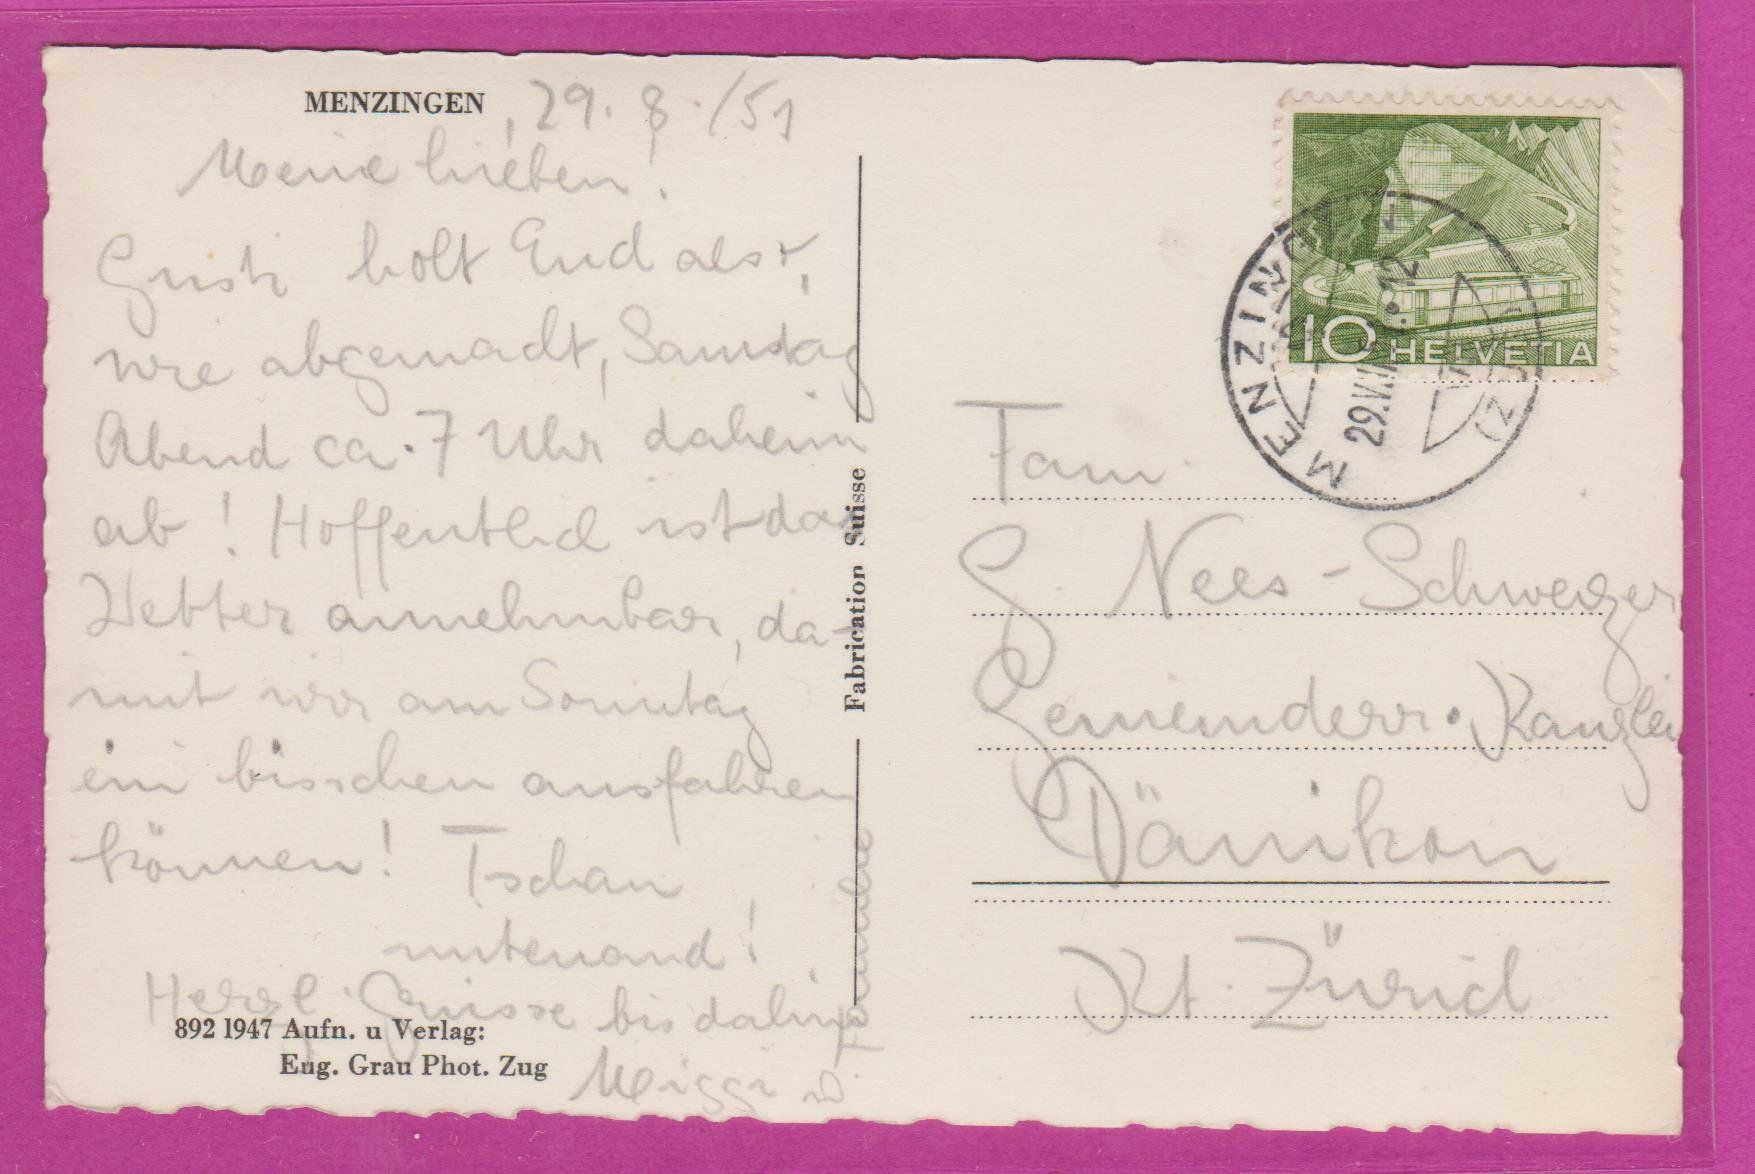 MENZINGEN , 29. 8. /51
Meine lieben!
Gusti holt Euch also,
wie abgemacht, Samstag
Abend ca. 7 Uhr daheim
ab! Hoffentlich ist das
Wetter annehmbar, da-
mit wir am Sonntag
ein bisschen ausfahren
können! Tschau
mitenand!
Herzl. Grüsse bis dahin
Meiggi u.
892 1947 Aufn. u Verlag:
Eug. Grau Phot. Zug
Fabrication Suisse
10 HELVETIA
MENZINGEN
29.VIII. 12
(ZUG)
Fam.
G. Nees-Schweizer
Gemeinderr. Kanzlei
Dänikon
Kt. Zürich